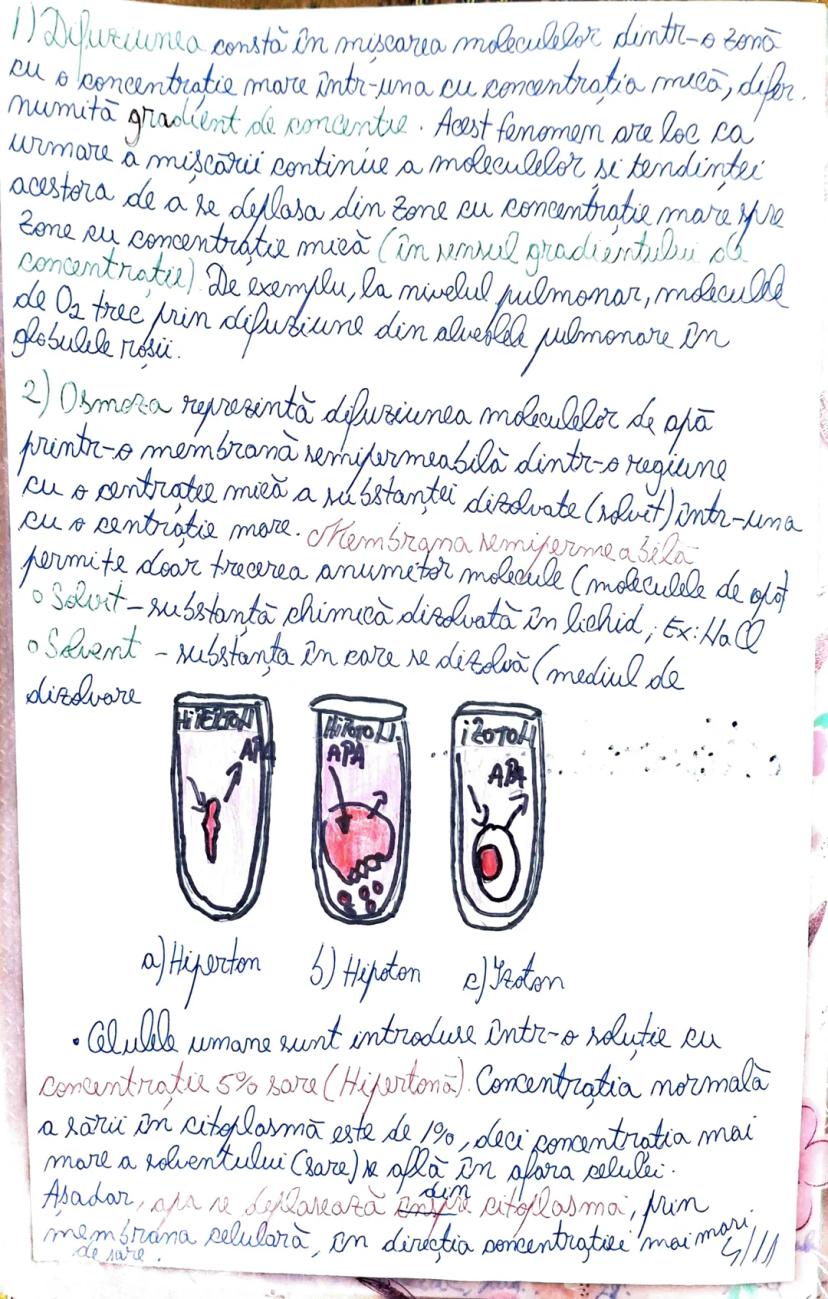 1) Difuziunea constă în mișcarea moleculelor dintr-o zonă
cu o concentrație mare într-una cu concentrația mică, difer.
numită gradient de concentie. Acest fenomen are loc ca
urmare a mișcării continue a moleculelor și tendinței
acestora de a se deplasa din zone cu concentrație mare spre
zone cu concentrație mică (în sensul gradientului de
concentrație). De exemplu, la nivelul pulmonar, moleculele
de O2 trec prin difuziune din alveolele pulmonare în
globulele roșii.
2) Osmoza reprezintă difuziunea moleculelor de apă
printr-o membrană semipermeabilă dintr-o regiune
cu o centrație mică a substanței dizolvate (solvit) într-una
cu o centrație mare. Membrana semipermeabilă
permite doar trecerea anumitor molecule (moleculele de apă)
o Solvit - substanță chimică dizolvată în lichid; Ex: NaCl
o Solvent - substanța în care se dizolvă (mediul de
dizolvare
HIPERTON HIPOTON IZOTON
APA APA APA
a) Hiperton b) Hipoton c) Izoton
• Celulele umane sunt introduse într-o soluție cu
concentrație 5% sare (Hipertonă). Concentrația normală
a sării în citoplasmă este de 1%, deci concentratia mai
mare a solventului (sare) se află în afara celulei.
Așadar, apa se deplasează din citoplasma, prin
membrana celulară, în direcția concentrației mai mari
de sare. 4/11